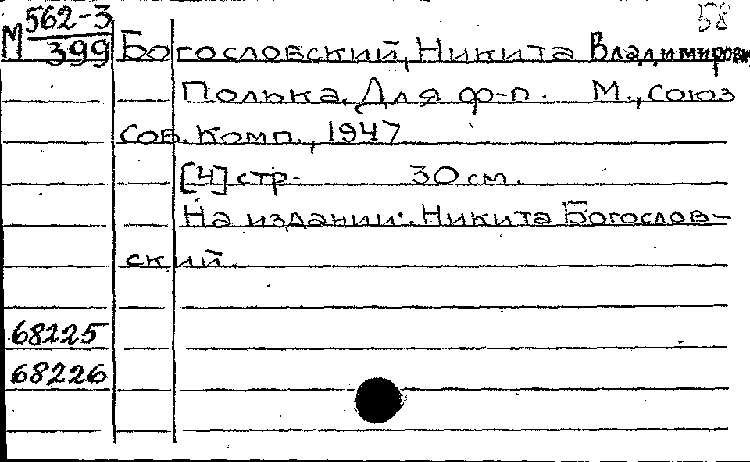 58
М 562-3
399
Богословский, Никита Владимирович
Полька. Для ф-п. М., Союз
Сов. Комп., 1947
[4] стр. 30 см.
На издании: Никита Богослов-
ский.
68225
68226